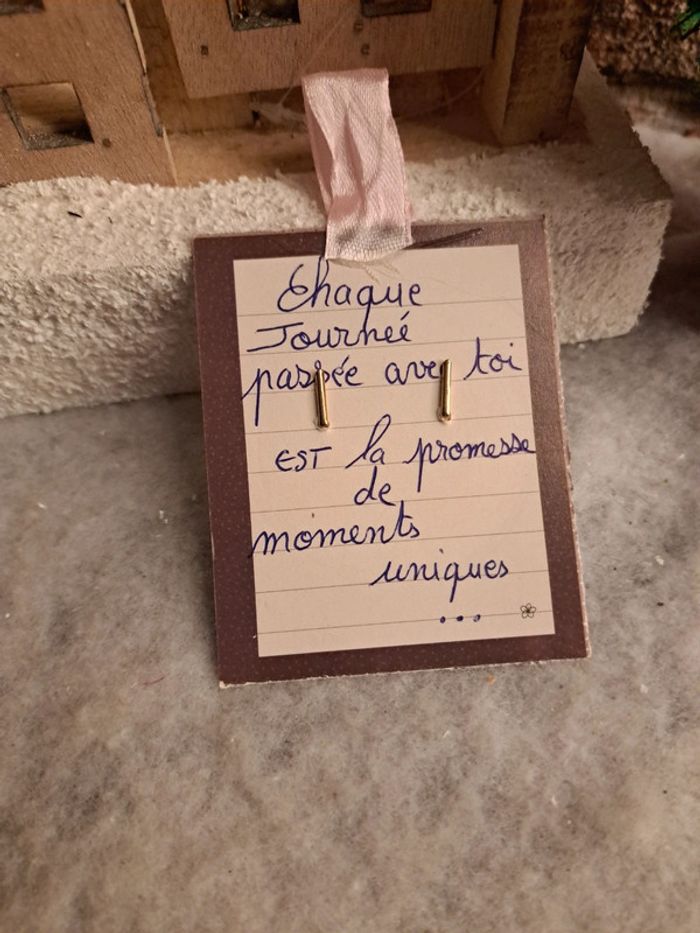 Chaque
Journée
passée avec toi
EST la promesse
de
moments
uniques
...